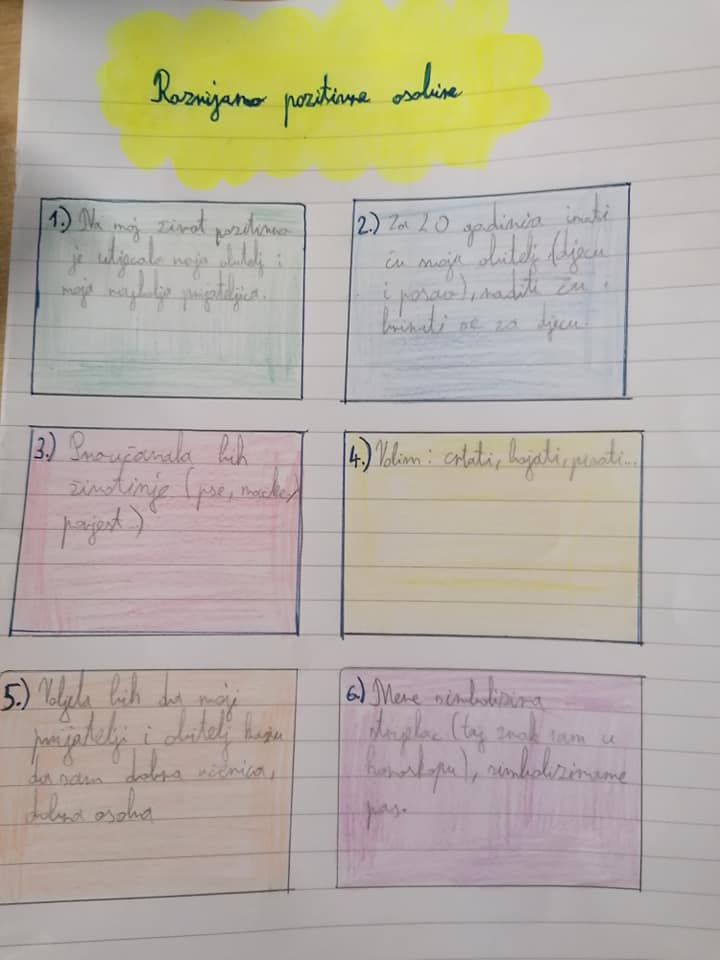 Razvijamo pozitivne osobine
1.) Na moj život pozitivno
je utjecala moja obitelj i
moja najbolja prijateljica.
2.) Za 20 godina imati
ću moju obitelj (djecu
i posao), raditi ću i
brinuti se za djecu.
3.) Proučavala bih
životinje (pse, mačke)
povjest...)
4.) Volim: crtati, bojati, pisati...
5.) Voljela bih da moji
prijatelji i obitelj kažu
da sam dobra učenica,
dobra osoba
6.) Mene simbolizira
strijelac (taj znak sam u
horoskopu), simbolizira me
pas.